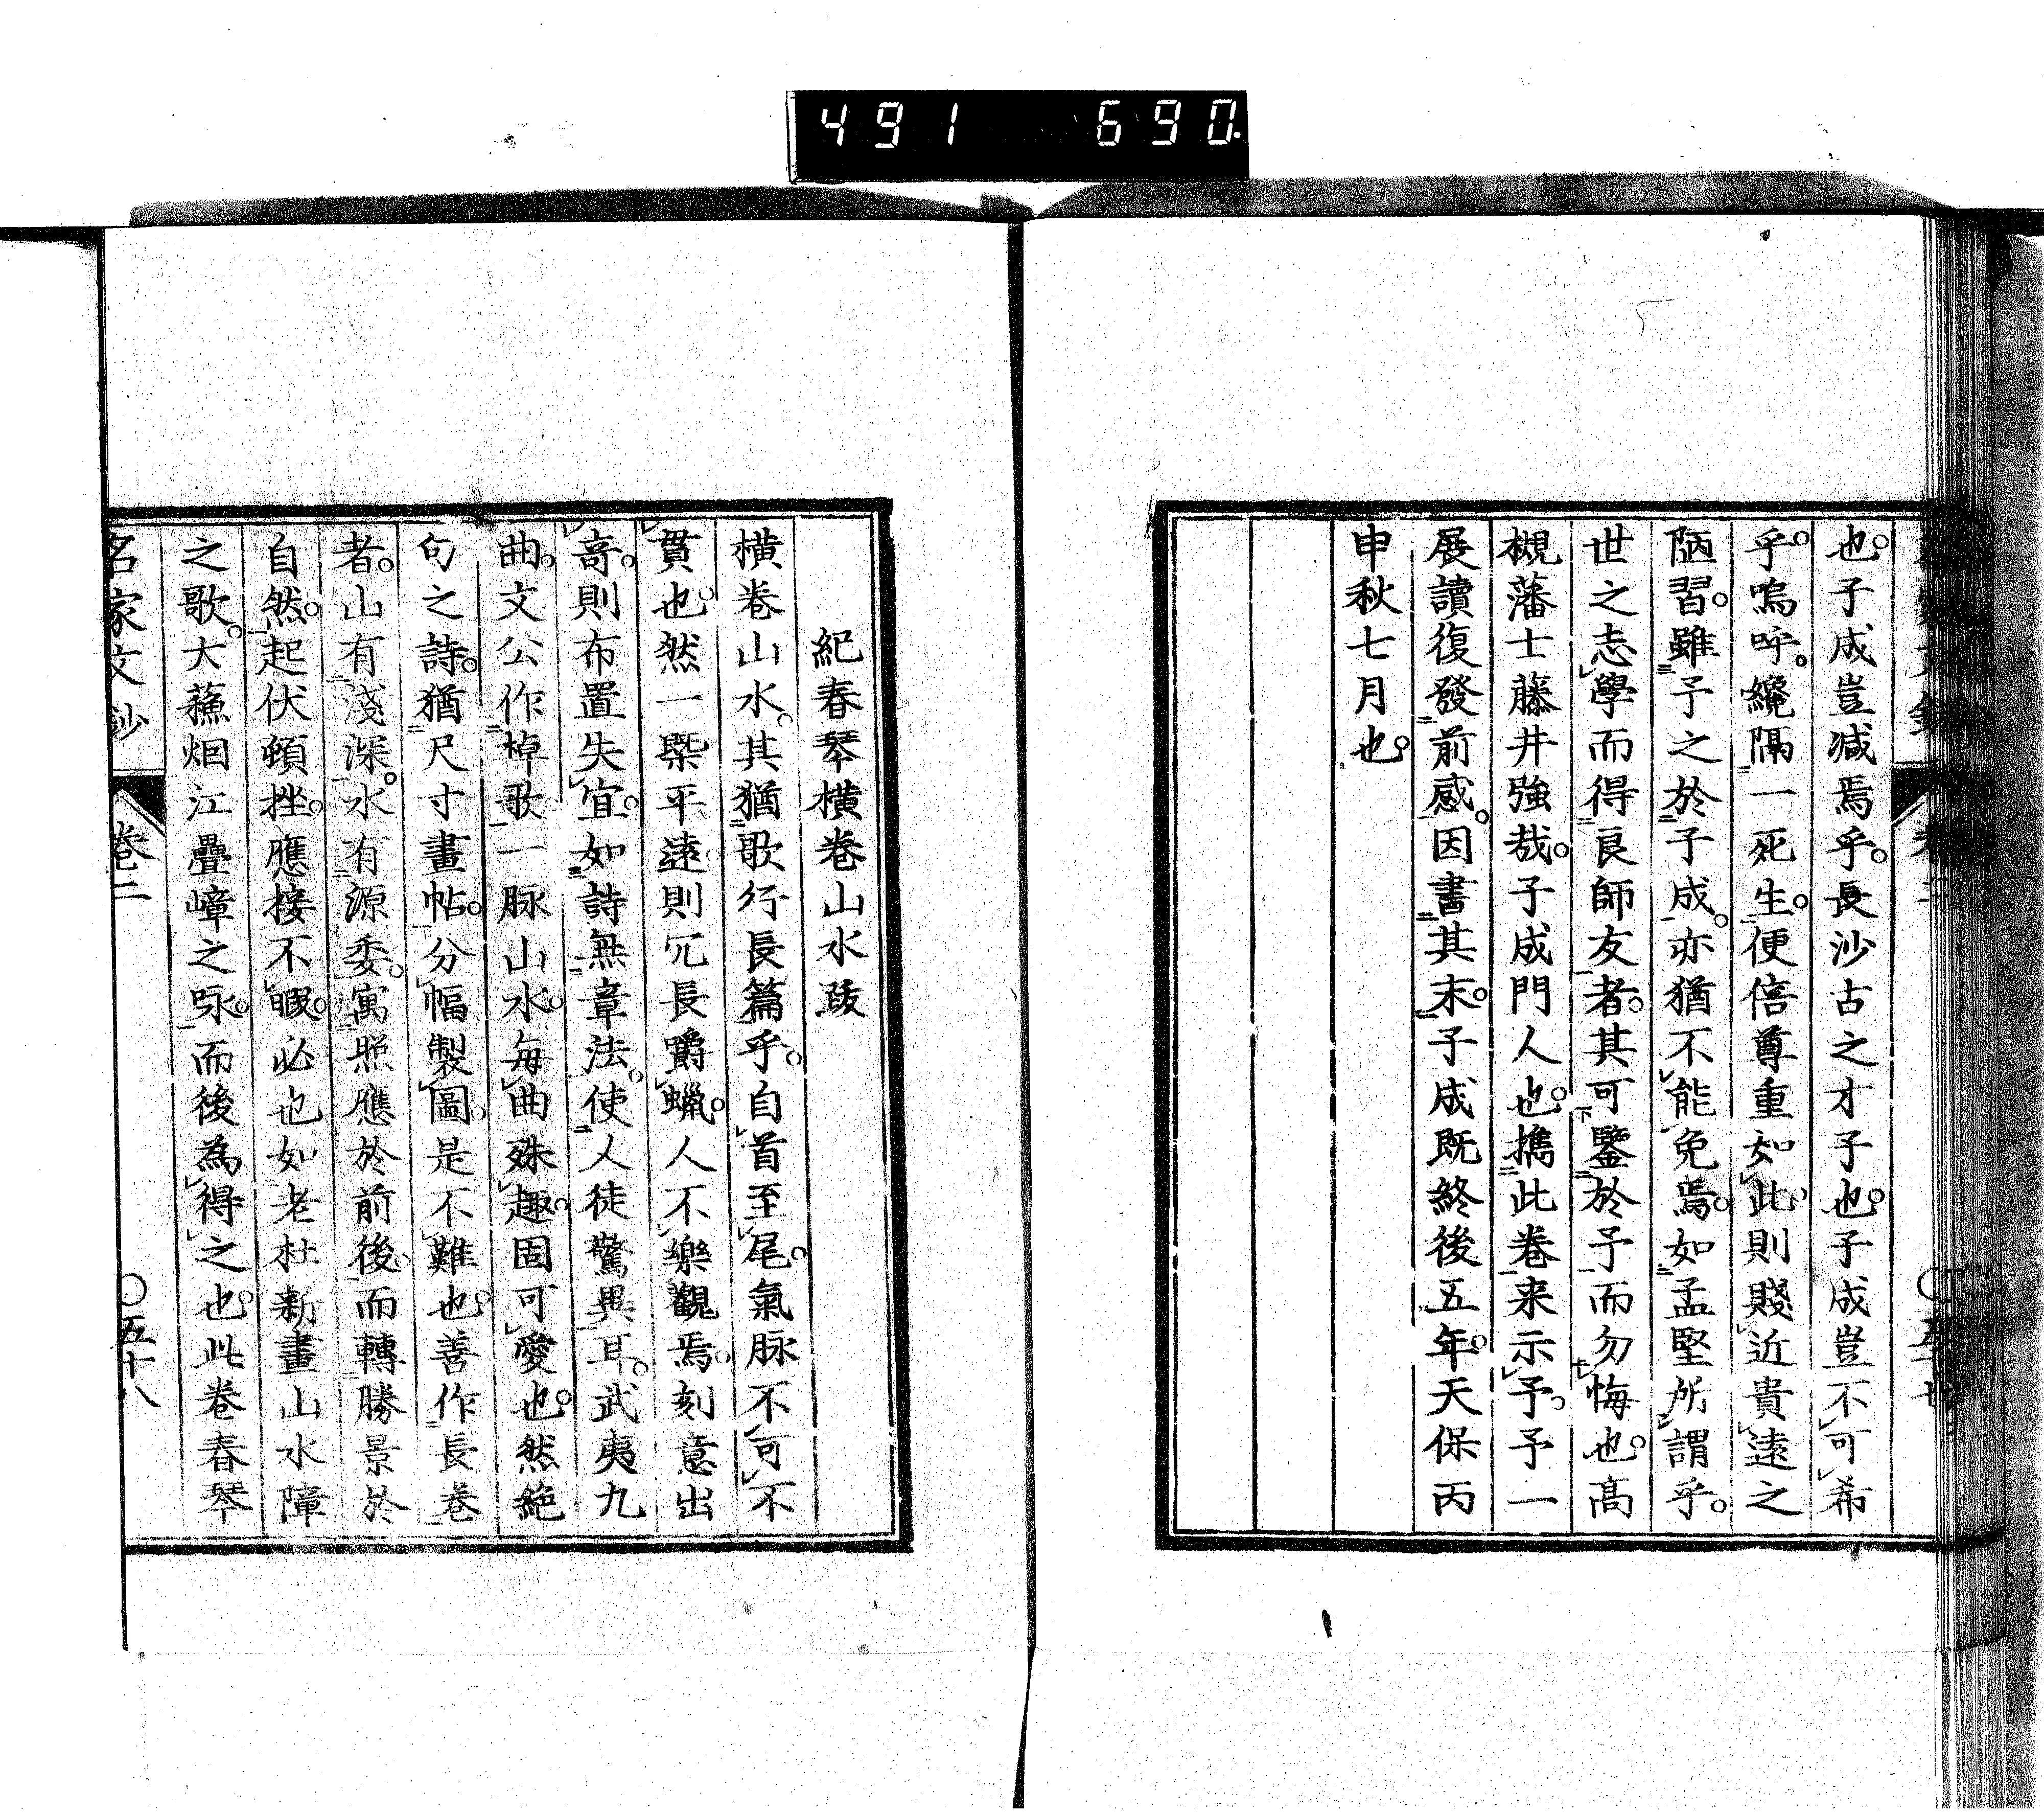 491 690.
也。子成豈減焉乎。長沙古之才子也。子成豈不可希
乎。嗚呼。纔隔一死生。便倍尊重如此。則賤近貴遠之
陋習。雖子之於子成。亦猶不能免焉。如孟堅所謂乎。
世之志學而得良師友者。其可鑒於予而勿悔也。高
槻藩士藤井強哉。子成門人也。携此卷来示予。予一
展讀復發前感。因書其末。子成既終後五年。天保丙
申秋七月也。
紀春琴橫卷山水跋
橫卷山水。其猶歌行長篇乎。自首至尾。氣脉不可不
貫也。然一槩平遠則冗長嚼蠟。人不樂觀焉。刻意出
奇。則布置失宜。如詩無章法。使人徒驚異耳。武夷九
曲。文公作棹歌。一脉山水。每曲殊趣。固可愛也。然絕
句之詩。猶尺寸畫帖。分幅製圖。是不難也。善作長卷
者。山有淺深。水有源委。寓照應於前後。而轉勝景於
自然。起伏頓挫。應接不暇。必也如老杜新畫山水障
之歌。大蘓烟江疊嶂之咏。而後為得之也。此卷春琴
名家文鈔 卷二 〇五十八